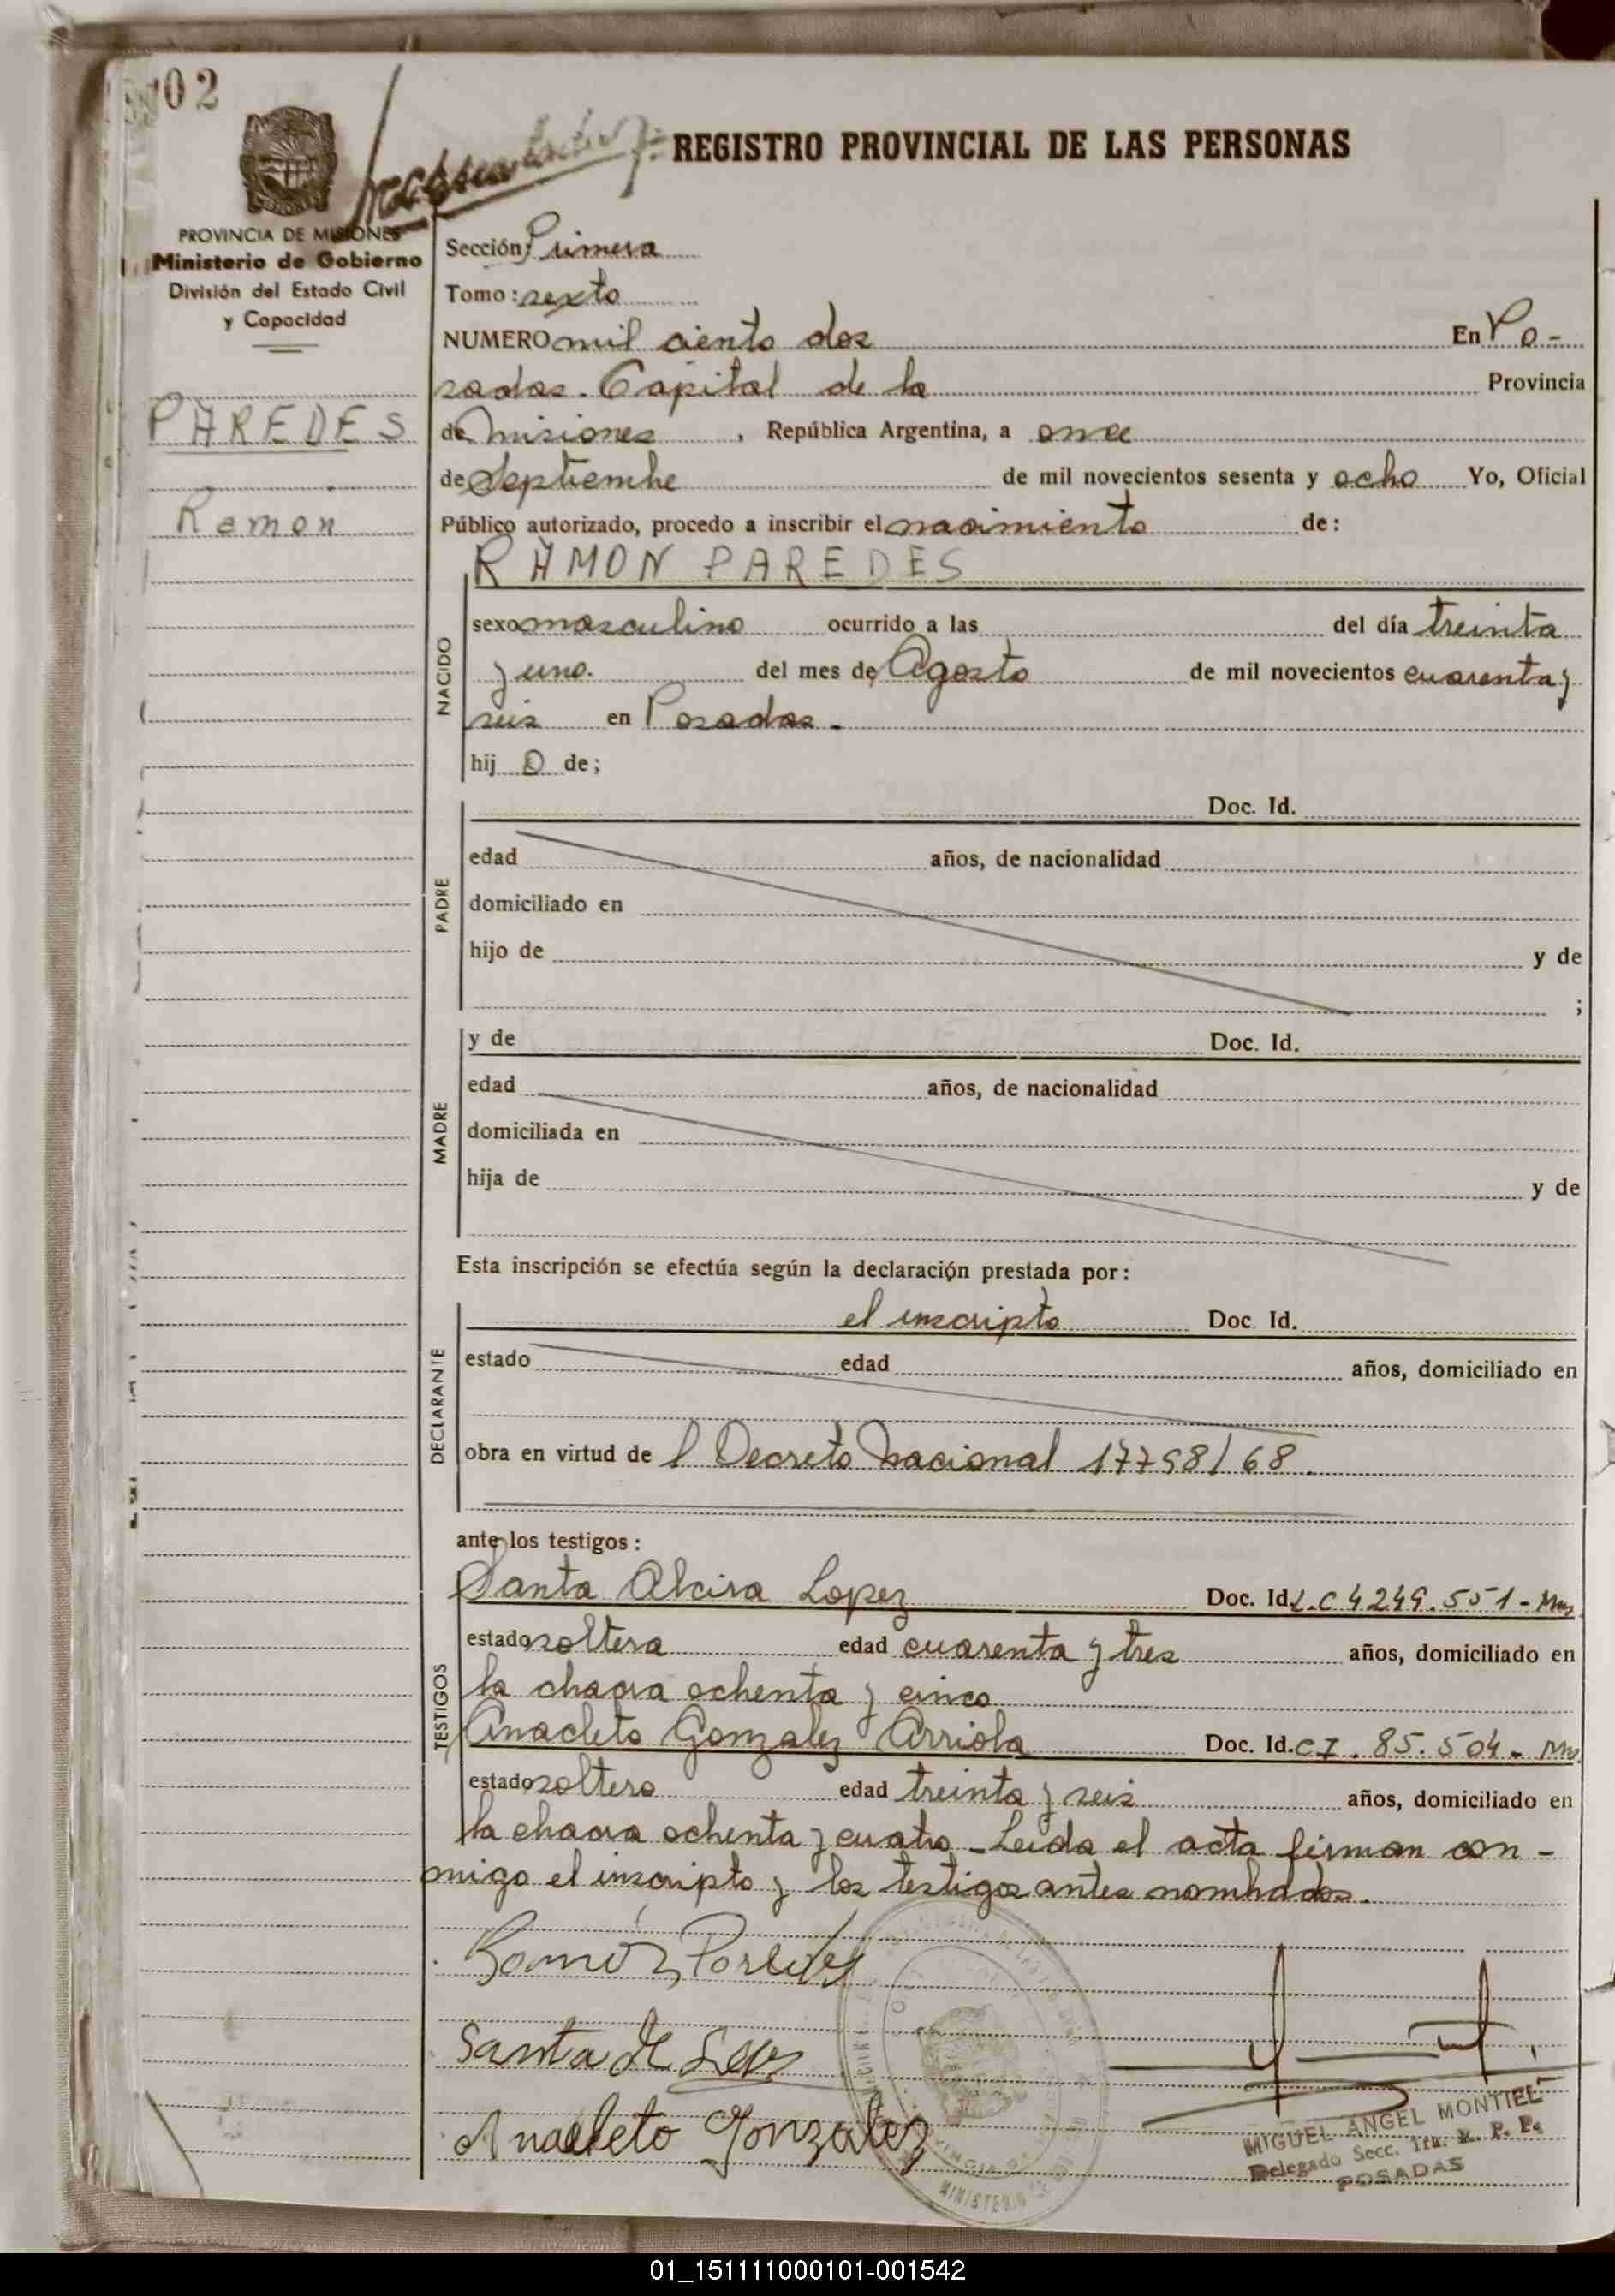 02
REGISTRO PROVINCIAL DE LAS PERSONAS
PROVINCIA DE MISIONES
Ministerio de Gobierno
División del Estado Civil
y Capacidad
PAREDES
Ramon
Sección: Primera
Tomo: sexto
NUMERO mil ciento dos En Po-
sadas. Capital de la Provincia
de Misiones, República Argentina, a once
de Septiembre de mil novecientos sesenta y ocho Yo, Oficial
Público autorizado, procedo a inscribir el nacimiento de:
RAMON PAREDES
NACIDO
sexo masculino ocurrido a las del día treinta
y uno. del mes de Agosto de mil novecientos cuarenta y
seis en Posadas.
hij o de;
PADRE
Doc. Id.
edad años, de nacionalidad
domiciliado en
hijo de y de
;
MADRE
y de Doc. Id.
edad años, de nacionalidad
domiciliada en
hija de y de
Esta inscripción se efectúa según la declaración prestada por:
DECLARANTE
el inscripto Doc. Id.
estado edad años, domiciliado en
obra en virtud de l Decreto Nacional 17798/68.
ante los testigos:
TESTIGOS
Santa Alcira Lopez Doc. Id. L.C 4249.551-Mns
estado soltera edad cuarenta y tres años, domiciliado en
la chacra ochenta y cinco
Anacleto Gonzalez Arriola Doc. Id. CI. 85.504- Mns
estado soltero edad treinta y seis años, domiciliado en
la chacra ochenta y cuatro - Leida el acta firman con-
migo el inscripto y los testigos antes nombrados.
Ramón Paredes
Santa A Lopez
Anacleto Gonzalez
MIGUEL ANGEL MONTIEL
Delegado Secc. 1ra. R. P. P.
POSADAS
01_151111000101-001542